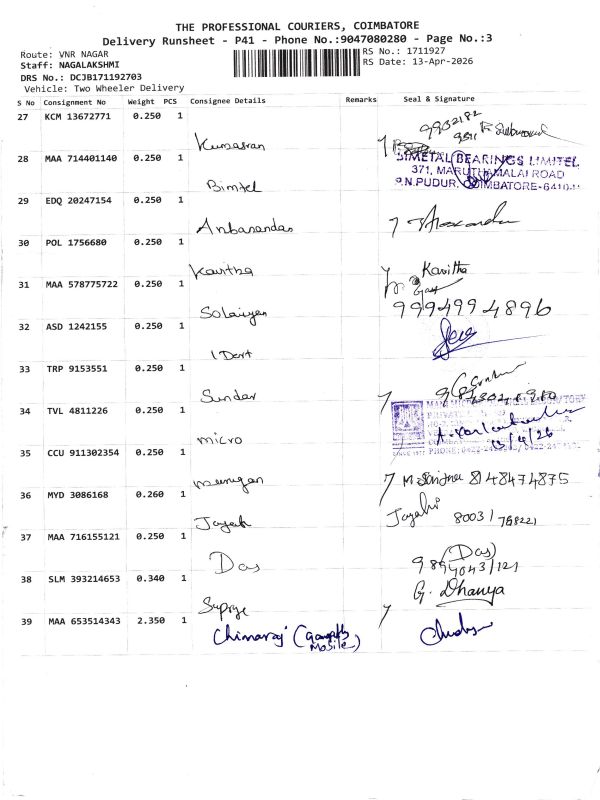 THE PROFESSIONAL COURIERS, COIMBATORE
Delivery Runsheet - P41 - Phone No.:9047080280 - Page No.:3
Route: VNR NAGAR
RS No.: 1711927
Staff: NAGALAKSHMI
RS Date: 13-Apr-2026
DRS No.: DCJB171192703
Vehicle: Two Wheeler Delivery
S No Consignment No Weight PCS Consignee Details Remarks Seal & Signature
27 KCM 13672771 0.250 1
Kumaran
28 MAA 714401140 0.250 1
BIMETAL BEARINGS LIMITED
371, MARUTHAMALAI ROAD
P.N.PUDUR, COIMBATORE-641041
Bimtel
29 EDQ 20247154 0.250 1
Anbanandan
30 POL 1756680 0.250 1
Kavitha Kavitha
31 MAA 578775722 0.250 1
Solaiyan 9994994896
32 ASD 1242155 0.250 1
1 Dart
33 TRP 9153551 0.250 1
Sundar
34 TVL 4811226 0.250 1
micro 13/4/26
35 CCU 911302354 0.250 1
murugan 8148474875
36 MYD 3086168 0.260 1
Jayah Jayahi 8003/768221
37 MAA 716155121 0.250 1
Das (Das)
38 SLM 393214653 0.340 1
G. Dhanya
39 MAA 653514343 2.350 1
Chinaraj (Ganapathy Mobile)